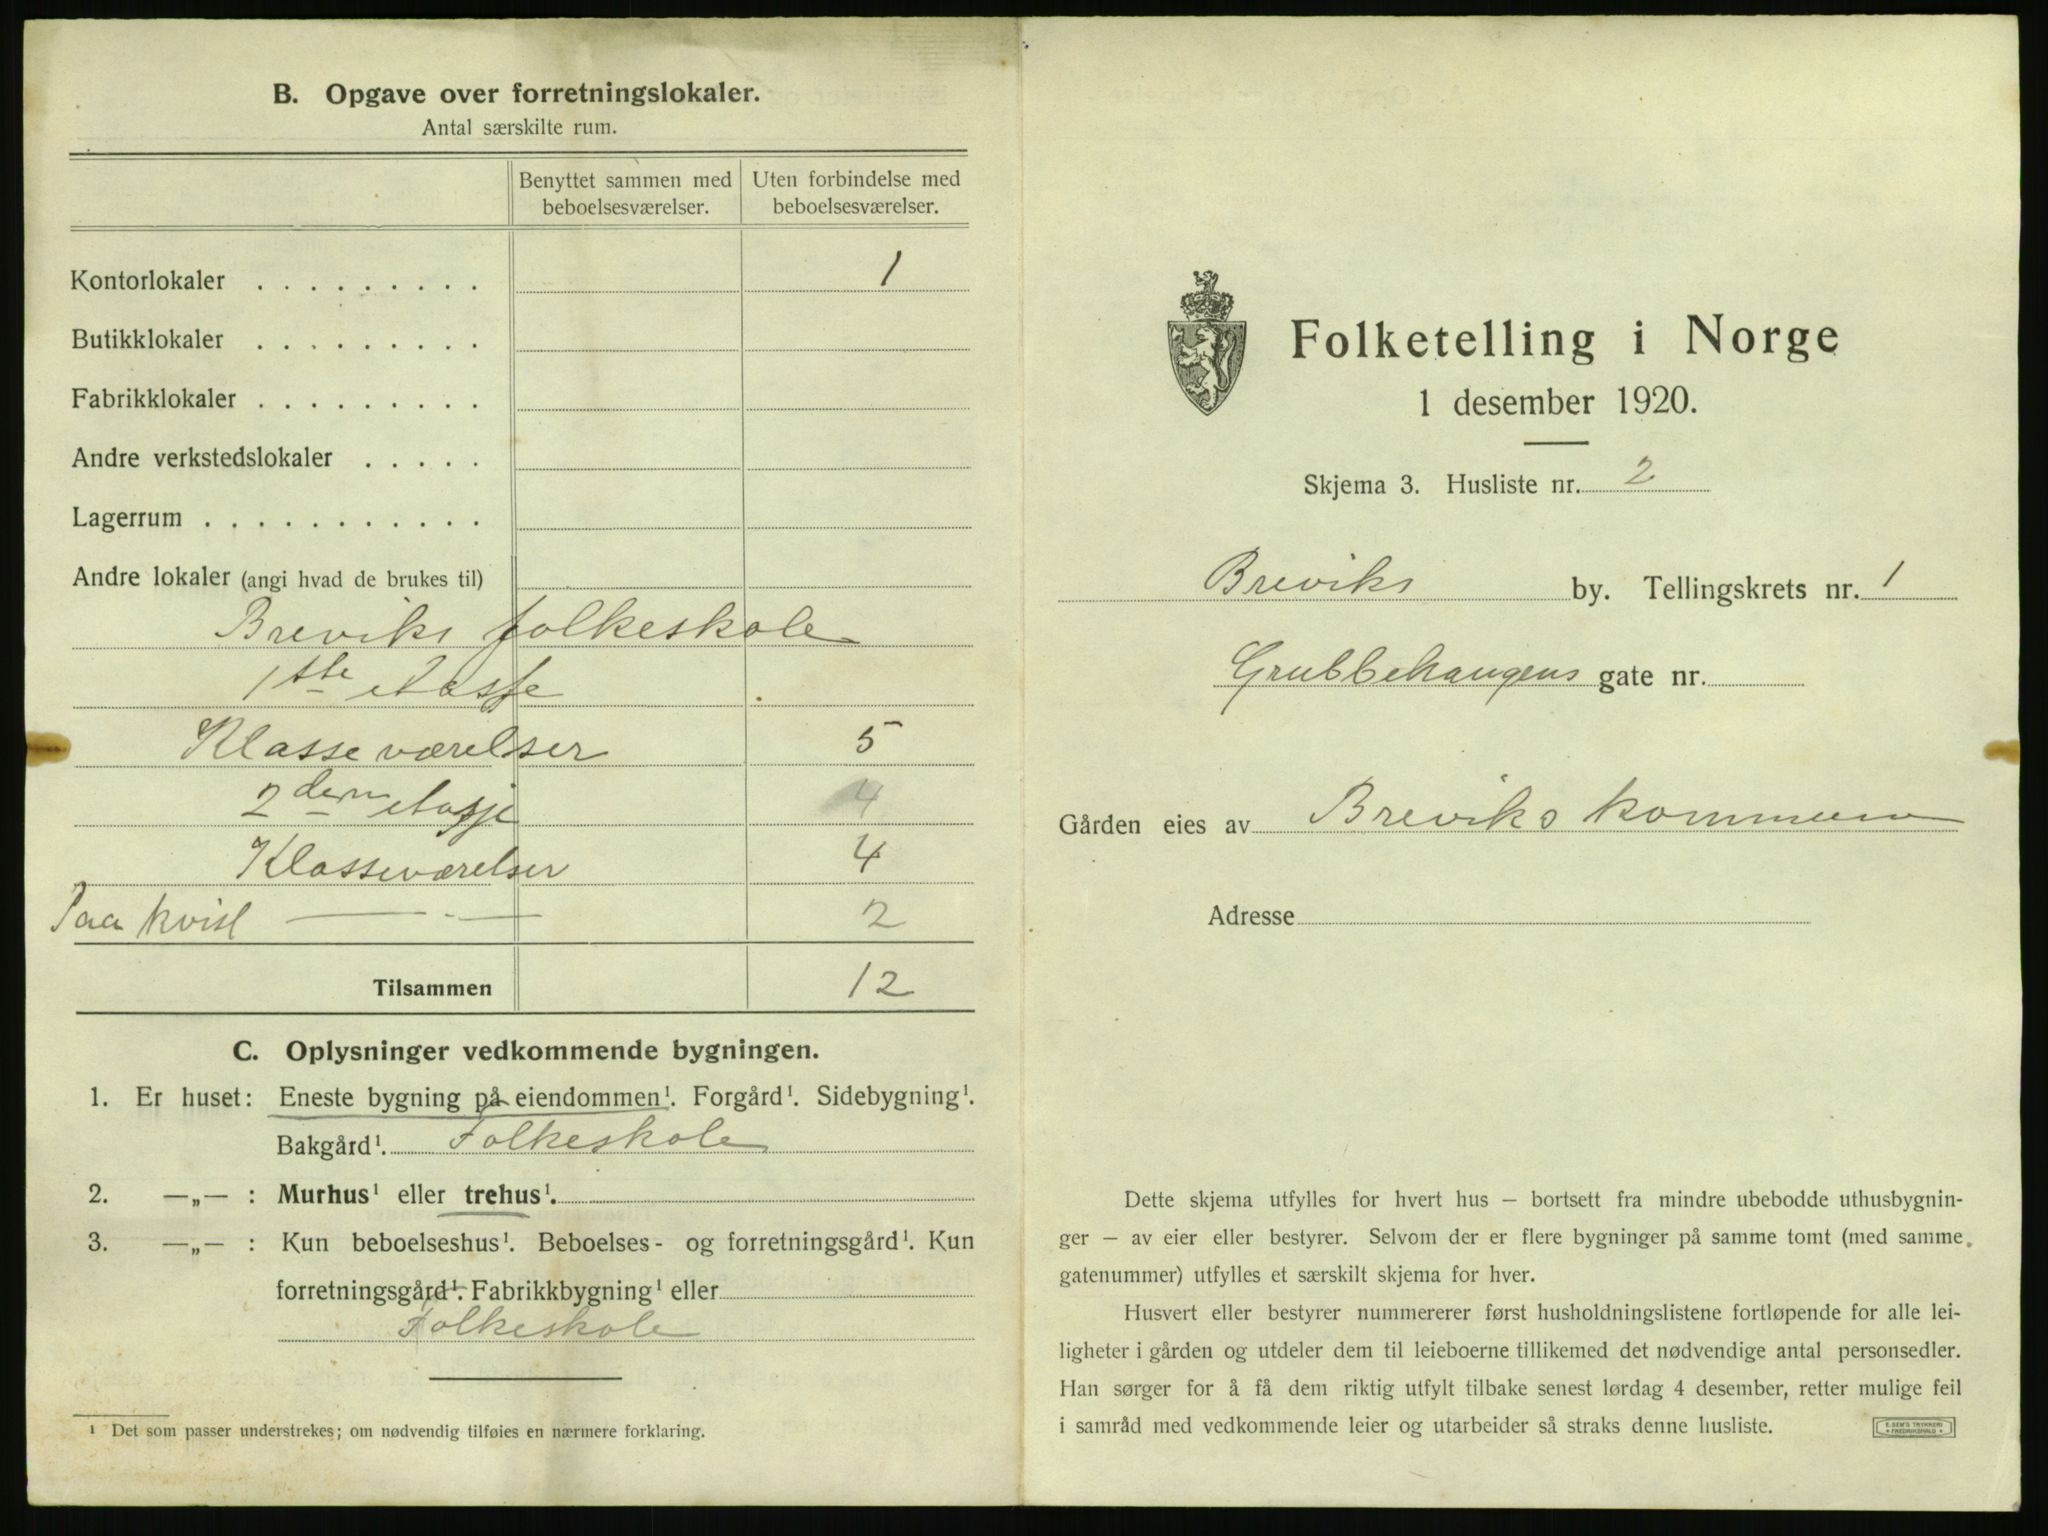 B. Opgave over forretningslokaler.
Antal særskilte rum.
Benyttet sammen med beboelsesværelser.
Uten forbindelse med beboelsesværelser.
Kontorlokaler . . . . . . . . . 1
Butikklokaler . . . . . . . . .
Fabrikklokaler . . . . . . . . .
Andre verkstedslokaler . . . . .
Lagerrum . . . . . . . . . . .
Andre lokaler (angi hvad de brukes til)
Breviks folkeskole
1ste etasje
Klasseværelser 5
2den etasje 4
Klasseværelser 4
Paa kvist — · — 2
Tilsammen 12
C. Oplysninger vedkommende bygningen.
1. Er huset: Eneste bygning på eiendommen¹. Forgård¹. Sidebygning¹.
Bakgård¹. Folkeskole
2. —„— : Murhus¹ eller trehus¹.
3. —„— : Kun beboelseshus¹. Beboelses- og forretningsgård¹. Kun
forretningsgård¹. Fabrikkbygning¹ eller
Folkeskole
¹ Det som passer understrekes; om nødvendig tilføies en nærmere forklaring.
Folketelling i Norge
1 desember 1920.
Skjema 3. Husliste nr. 2
Breviks by. Tellingskrets nr. 1
Grubbehaugens gate nr.
Gården eies av Breviks kommune
Adresse
Dette skjema utfylles for hvert hus – bortsett fra mindre ubebodde uthusbygnin-
ger – av eier eller bestyrer. Selvom der er flere bygninger på samme tomt (med samme
gatenummer) utfylles et særskilt skjema for hver.
Husvert eller bestyrer nummererer først husholdningslistene fortløpende for alle lei-
ligheter i gården og utdeler dem til leieboerne tillikemed det nødvendige antal personsedler.
Han sørger for å få dem riktig utfylt tilbake senest lørdag 4 desember, retter mulige feil
i samråd med vedkommende leier og utarbeider så straks denne husliste.
E. SEM'S TRYKKERI
FREDRIKSHALD